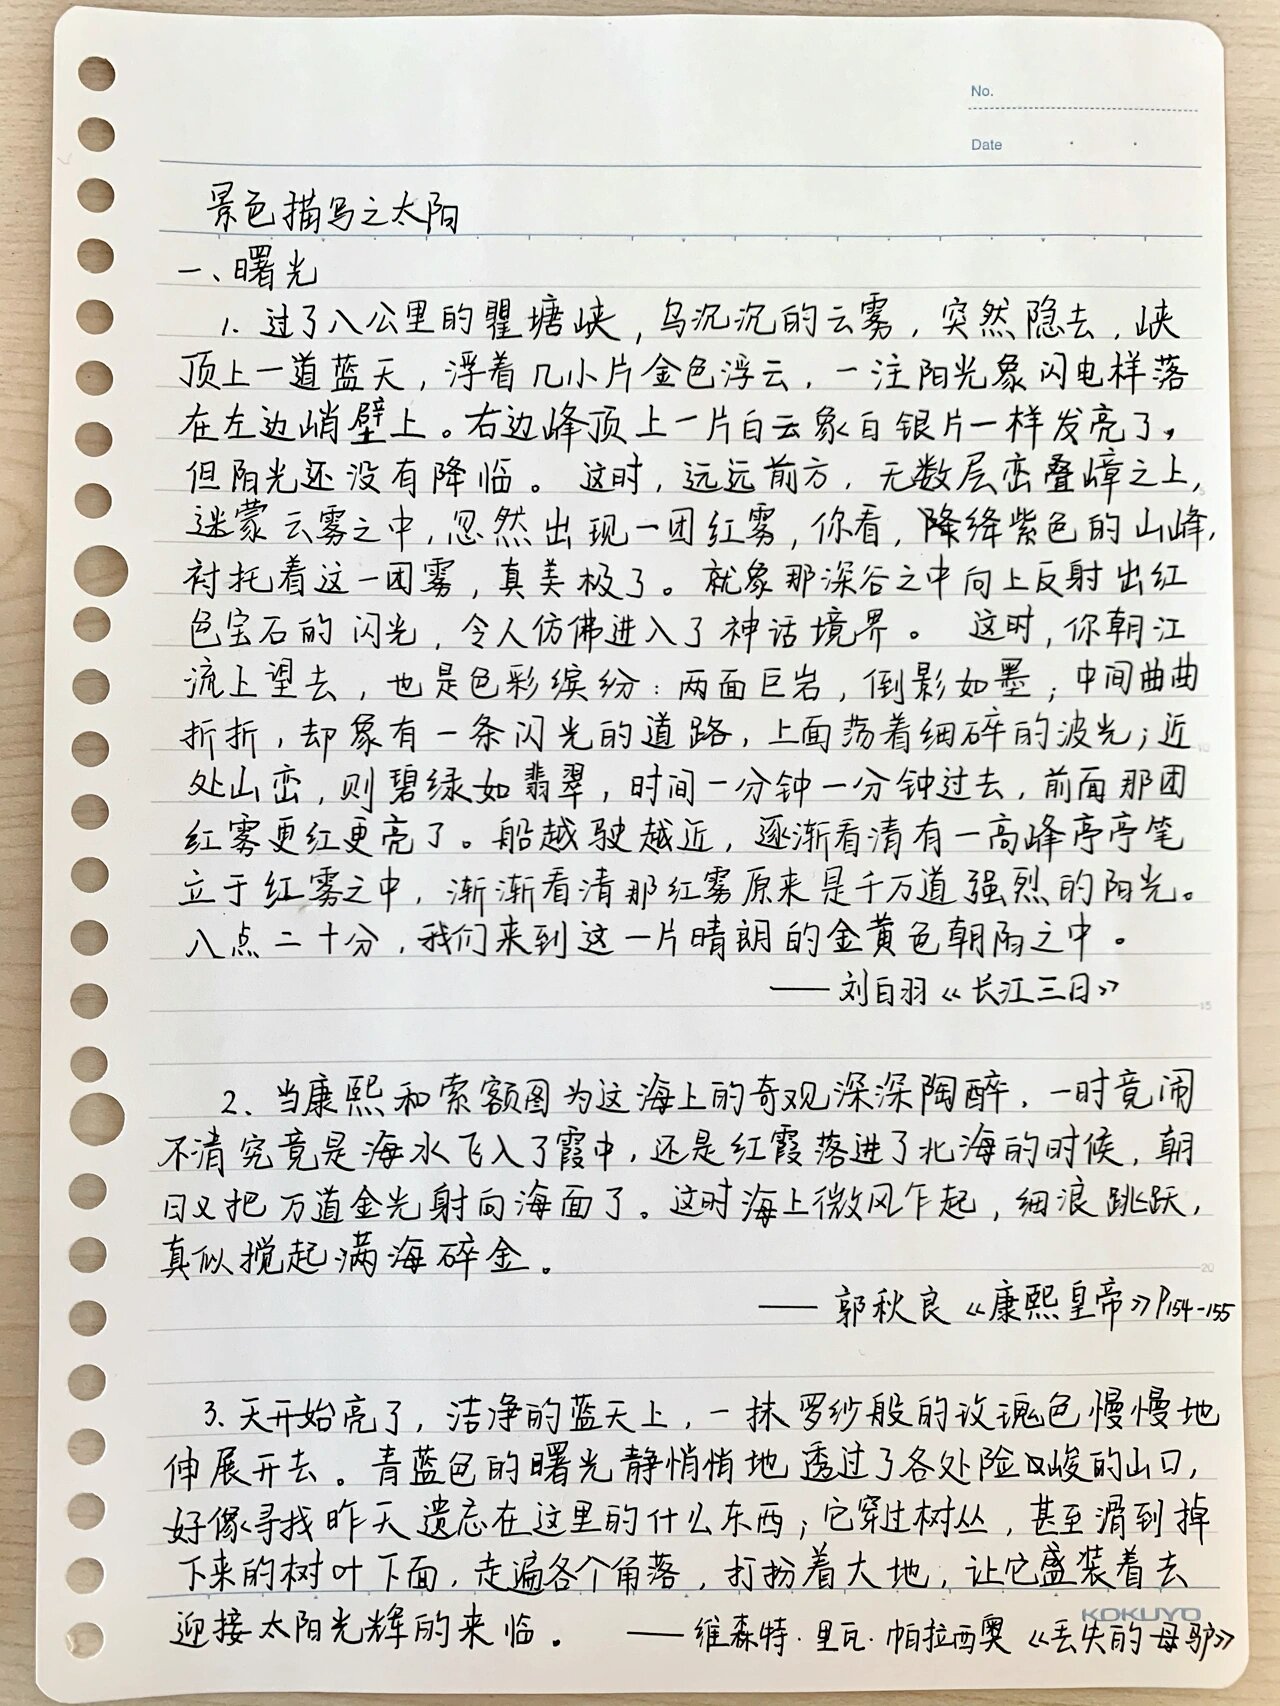 No.
Date
景色描写之太阳
一、曙光
1. 过了八公里的瞿塘峡,乌沉沉的云雾,突然隐去,峡
顶上一道蓝天,浮着几小片金色浮云,一注阳光象闪电样落
在左边峭壁上。右边峰顶上一片白云象白银片一样发亮了,
但阳光还没有降临。这时,远远前方,无数层峦叠嶂之上,
迷蒙云雾之中,忽然出现一团红雾,你看,降绛紫色的山峰,
衬托着这一团雾,真美极了。就象那深谷之中向上反射出红
色宝石的闪光,令人仿佛进入了神话境界。这时,你朝江
流上望去,也是色彩缤纷:两面巨岩,倒影如墨;中间曲曲
折折,却象有一条闪光的道路,上面荡着细碎的波光;近
处山峦,则碧绿如翡翠,时间一分钟一分钟过去,前面那团
红雾更红更亮了。船越驶越近,逐渐看清有一高峰亭亭笔
立于红雾之中,渐渐看清那红雾原来是千万道强烈的阳光。
八点二十分,我们来到这一片晴朗的金黄色朝阳之中。
——刘白羽《长江三日》
15
2、当康熙和索额图为这海上的奇观深深陶醉,一时竟闹
不清究竟是海水飞入了霞中,还是红霞落进了北海的时候,朝
日又把万道金光射向海面了。这时海上微风乍起,细浪跳跃,
真似搅起满海碎金。
20
——郭秋良《康熙皇帝》P154-155
3.天开始亮了,洁净的蓝天上,一抹罗纱般的玫瑰色慢慢地
伸展开去。青蓝色的曙光静悄悄地透过了各处险峻的山口,
好像寻找昨天遗忘在这里的什么东西;它穿过树丛,甚至滑到掉
下来的树叶下面,走遍各个角落,打扮着大地,让它盛装着去
迎接太阳光辉的来临。 ——维森特·里瓦·帕拉西奥《丢失的母驴》
KOKUYO